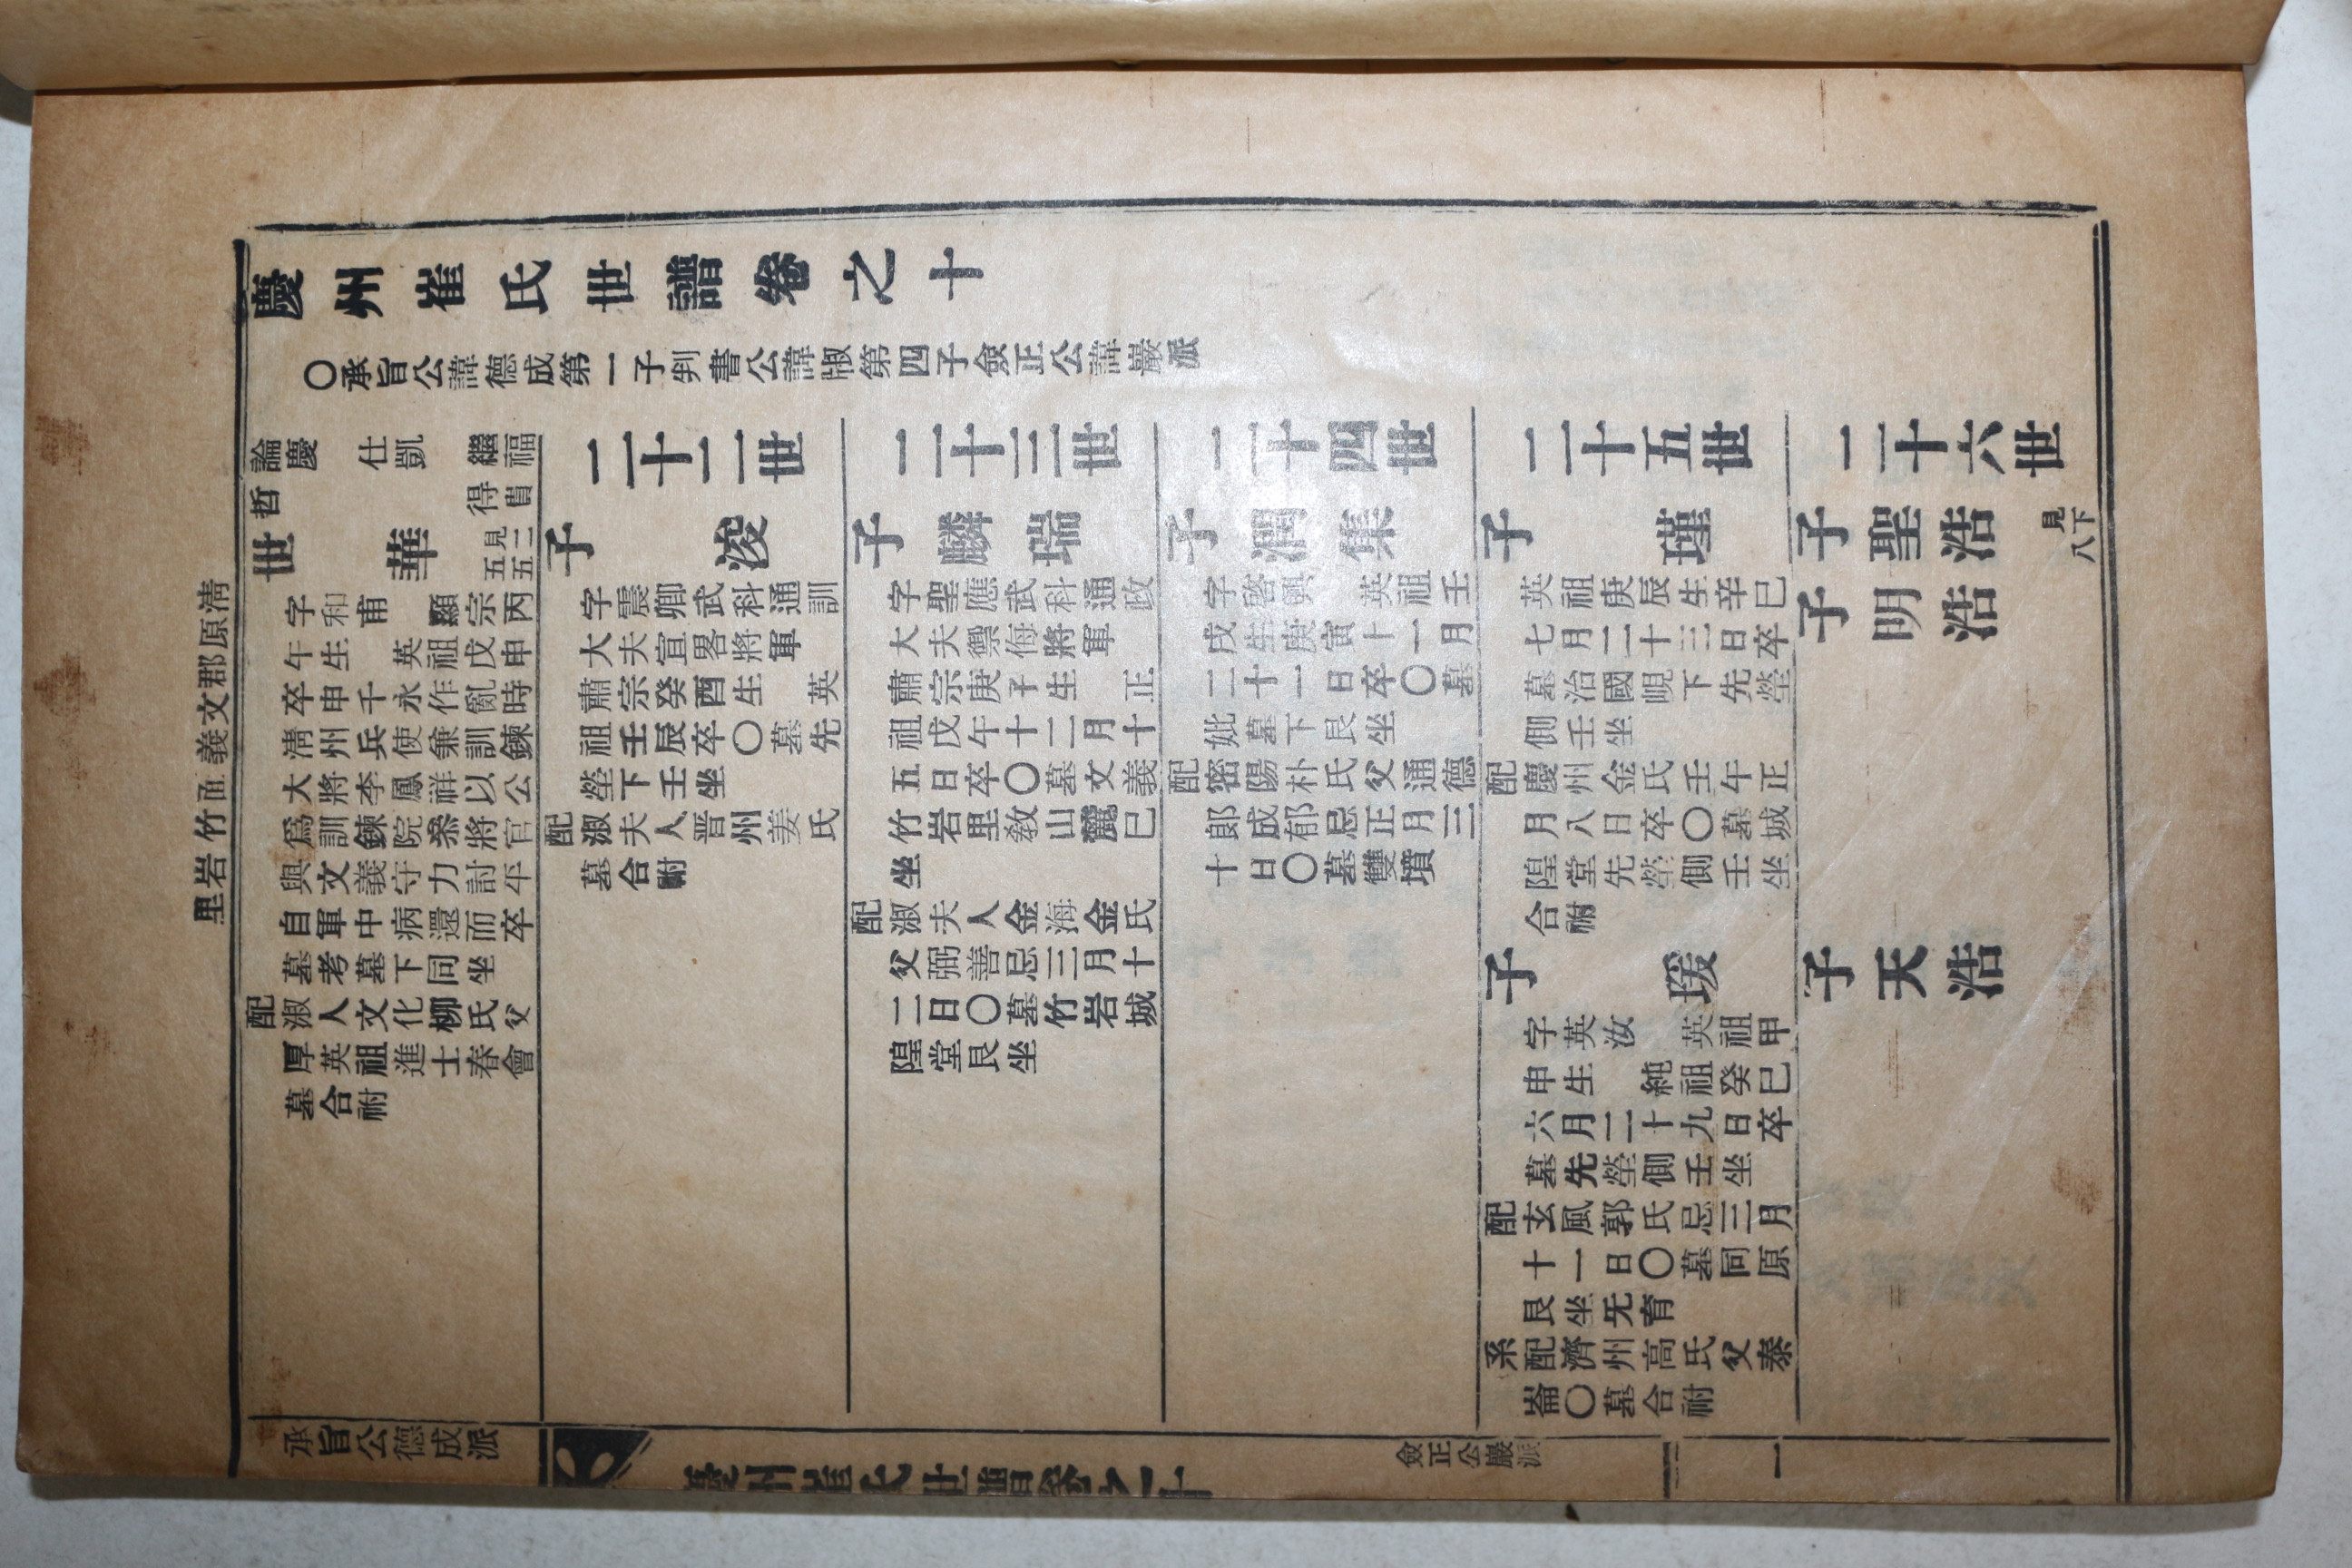 清原郡文義面竹岩里
慶州崔氏世譜卷之十
〇承旨公諱德成第一子判書公諱淑第四子僉正公諱巖派
論慶 仕凱 繼福
哲 得貴
世 華 見二五五
字和甫 顯宗丙
午生 英祖戊申
卒申千永作亂時
清州兵使兼訓鍊
大將李鳳祥以公
爲訓鍊院叅將官
與文義守力討平
自軍中病還而卒
墓考墓下同坐
配淑人文化柳氏父
厚英祖進士春會
墓合祔
二十二世
子 浚
字震卿武科通訓
大夫宣畧將軍
肅宗癸酉生 英
祖壬辰卒〇墓先
塋下壬坐
配淑夫人晋州姜氏
墓合祔
二十三世
子 麟瑞
字聖應武科通政
大夫禦侮將軍
肅宗庚子生 正
祖戊午十二月十
五日卒〇墓文義
竹岩里敎山麓巳
坐
配淑夫人金海金氏
父弼善忌三月十
二日〇墓竹岩城
隍堂艮坐
二十四世
子 潤集
字啓興 英祖壬
戌生庚寅十一月
二十一日卒〇墓
妣墓下艮坐
配密陽朴氏父通德
郎成郁忌正月三
十日〇墓雙墳
二十五世
子 瑾
英祖庚辰生辛巳
七月二十三日卒
墓治國峴下先塋
側壬坐
配慶州金氏壬午正
月八日卒〇墓城
隍堂先塋側壬坐
合祔
子 瑗
字英汝 英祖甲
申生 純祖癸巳
六月二十九日卒
墓先塋側壬坐
配玄風郭氏忌三月
十一日〇墓同原
艮坐旡育
系配濟州高氏父泰
崙〇墓合祔
二十六世
子聖浩 見下八
子明浩
子天浩
承旨公德成派
慶州崔氏世譜卷之十
僉正公巖派
一